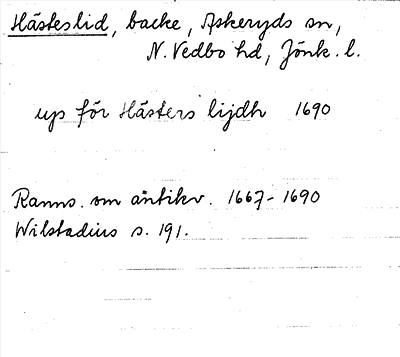 Hästeslid, backe, Askeryds sn,
N. Vedbo hd, Jönk. l.
ups för Hästers lijdh 1690
Ranns. om antikv. 1667-1690
Wilstadius s. 191.